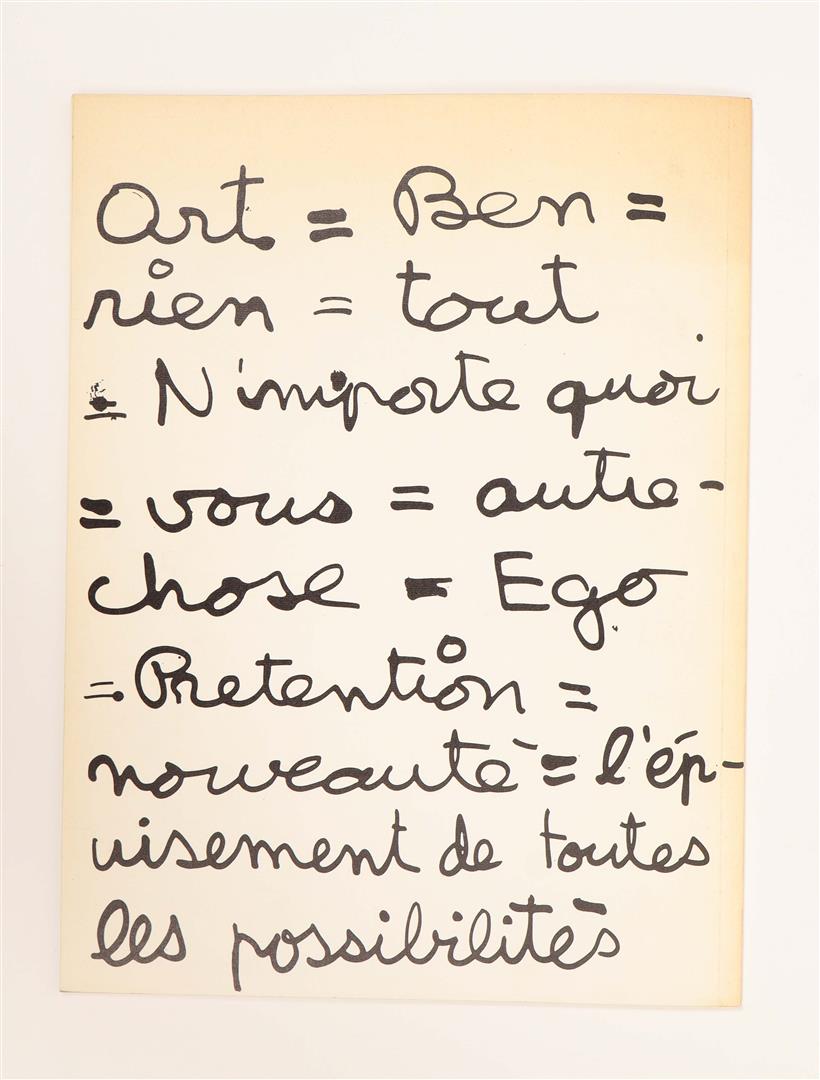 Art = Ben =
rien = tout
= N'importe quoi
= vous = autre-
chose = Ego
= Pretention =
nouveauté = l'ép-
uisement de toutes
les possibilités